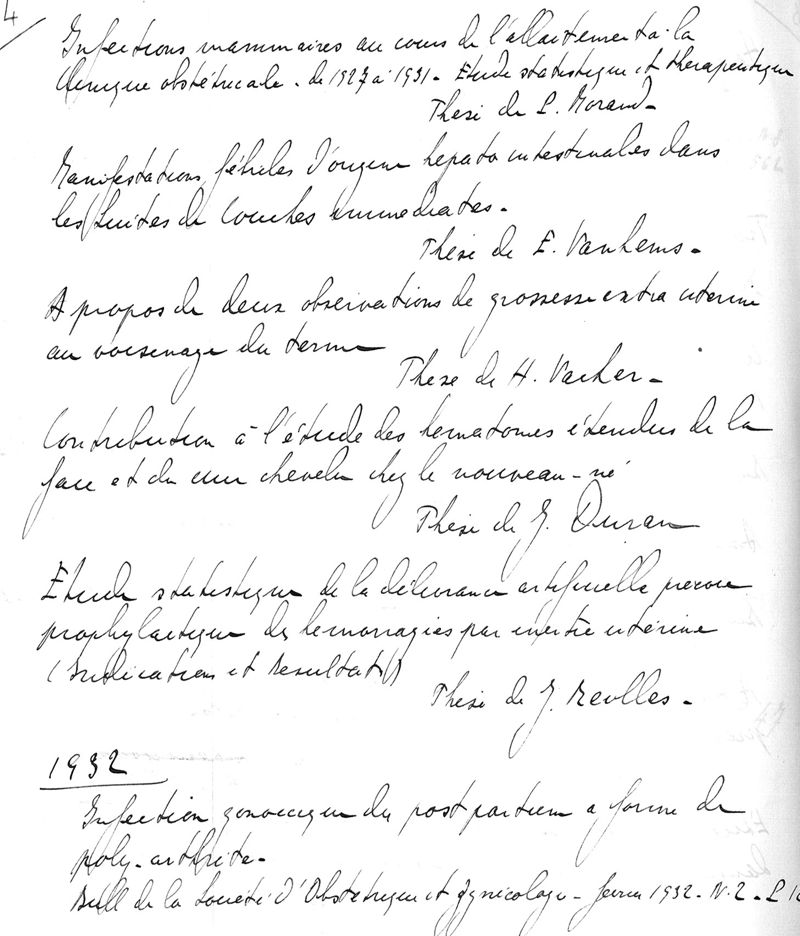 4
Infections mammaires au cours de l'allaitement à la
Clinique obstétricale. de 1927 à 1931. Etude statistique et thérapeutique
Thèse de L. Morand.
Manifestations fébriles d'origine hepato intestinales dans
les suites de Couches immediates.
Thèse de E. Vanhems.
A propos de deux observations de grossesse extra uterine
au voisinage du terme
Thèse de H. Vacher.
Contribution à l'étude des hematomes étendus de la
face et du cuir chevelu chez le nouveau-né
Thèse de J. Duran
Etude statistique de la délivrance artificielle precoce
prophylactique des hemorragies par inertie utérine
(Indications et Resultats)
Thèse de J.
1932
Infection gonococcique du post partum a forme de
poly-arthrite.
Bull de la Société d'Obstetrique et gynécologie - fevrier 1932. N. 2 -